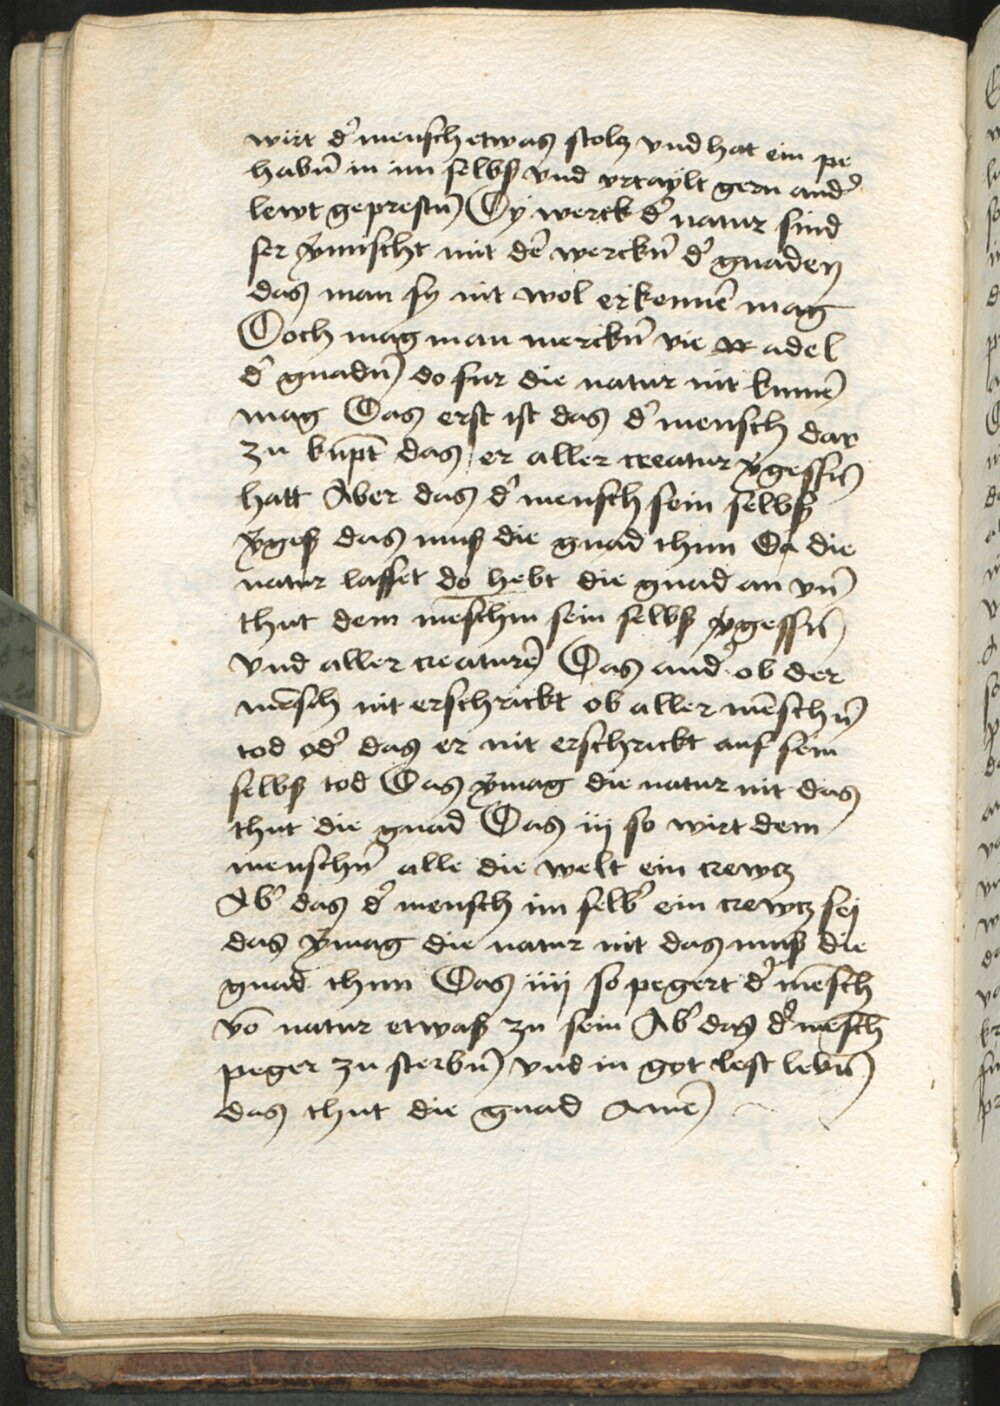 wirt d' mensch etwas stolz vnd hat ein pe
habn̄ in im selbß vnd vrtaylt gern and'
lewt geprestn̄ Dy werck d' natur sind
ser v̾mischt mit dē werckn̄ d' gnaden
das man sy nit wol erkennē mag
Doch mag man merckn̄ vie adel
d' gnadn̄ do fur die natur nit kumē
mag Das erst ist das d' mensch dar
zu kupt̄ das er aller creatur v̾gessn̄
hatt Aber das d' mensch sein selbß
v̾geß das muß die gnad thun Da die
natur lasset do hebt die gnad an vn̄
thut dem mēschin sein selbß v̾gessn̄
vnd aller creaturē Das and' ob der
mēsch nit erschrickt ob aller mēschn̄
tod od' das er nit erschrickt auf sein
selbß tod Das v̾mag die natur nit das
thut die gnad Das iij so wirt dem
menschn̄ alle die welt ein crewcz
Ab' das d' mensch im selb' ein crewcz sej
das v̾mag die natur nit das muß die
gnad thun Das iiij so pegert d' mēsch
vō natur etwaß zu sein Ab' das d' mēsch
peger zu sterbn̄ vnd in got lest lebn̄
das thut die gnad Amē